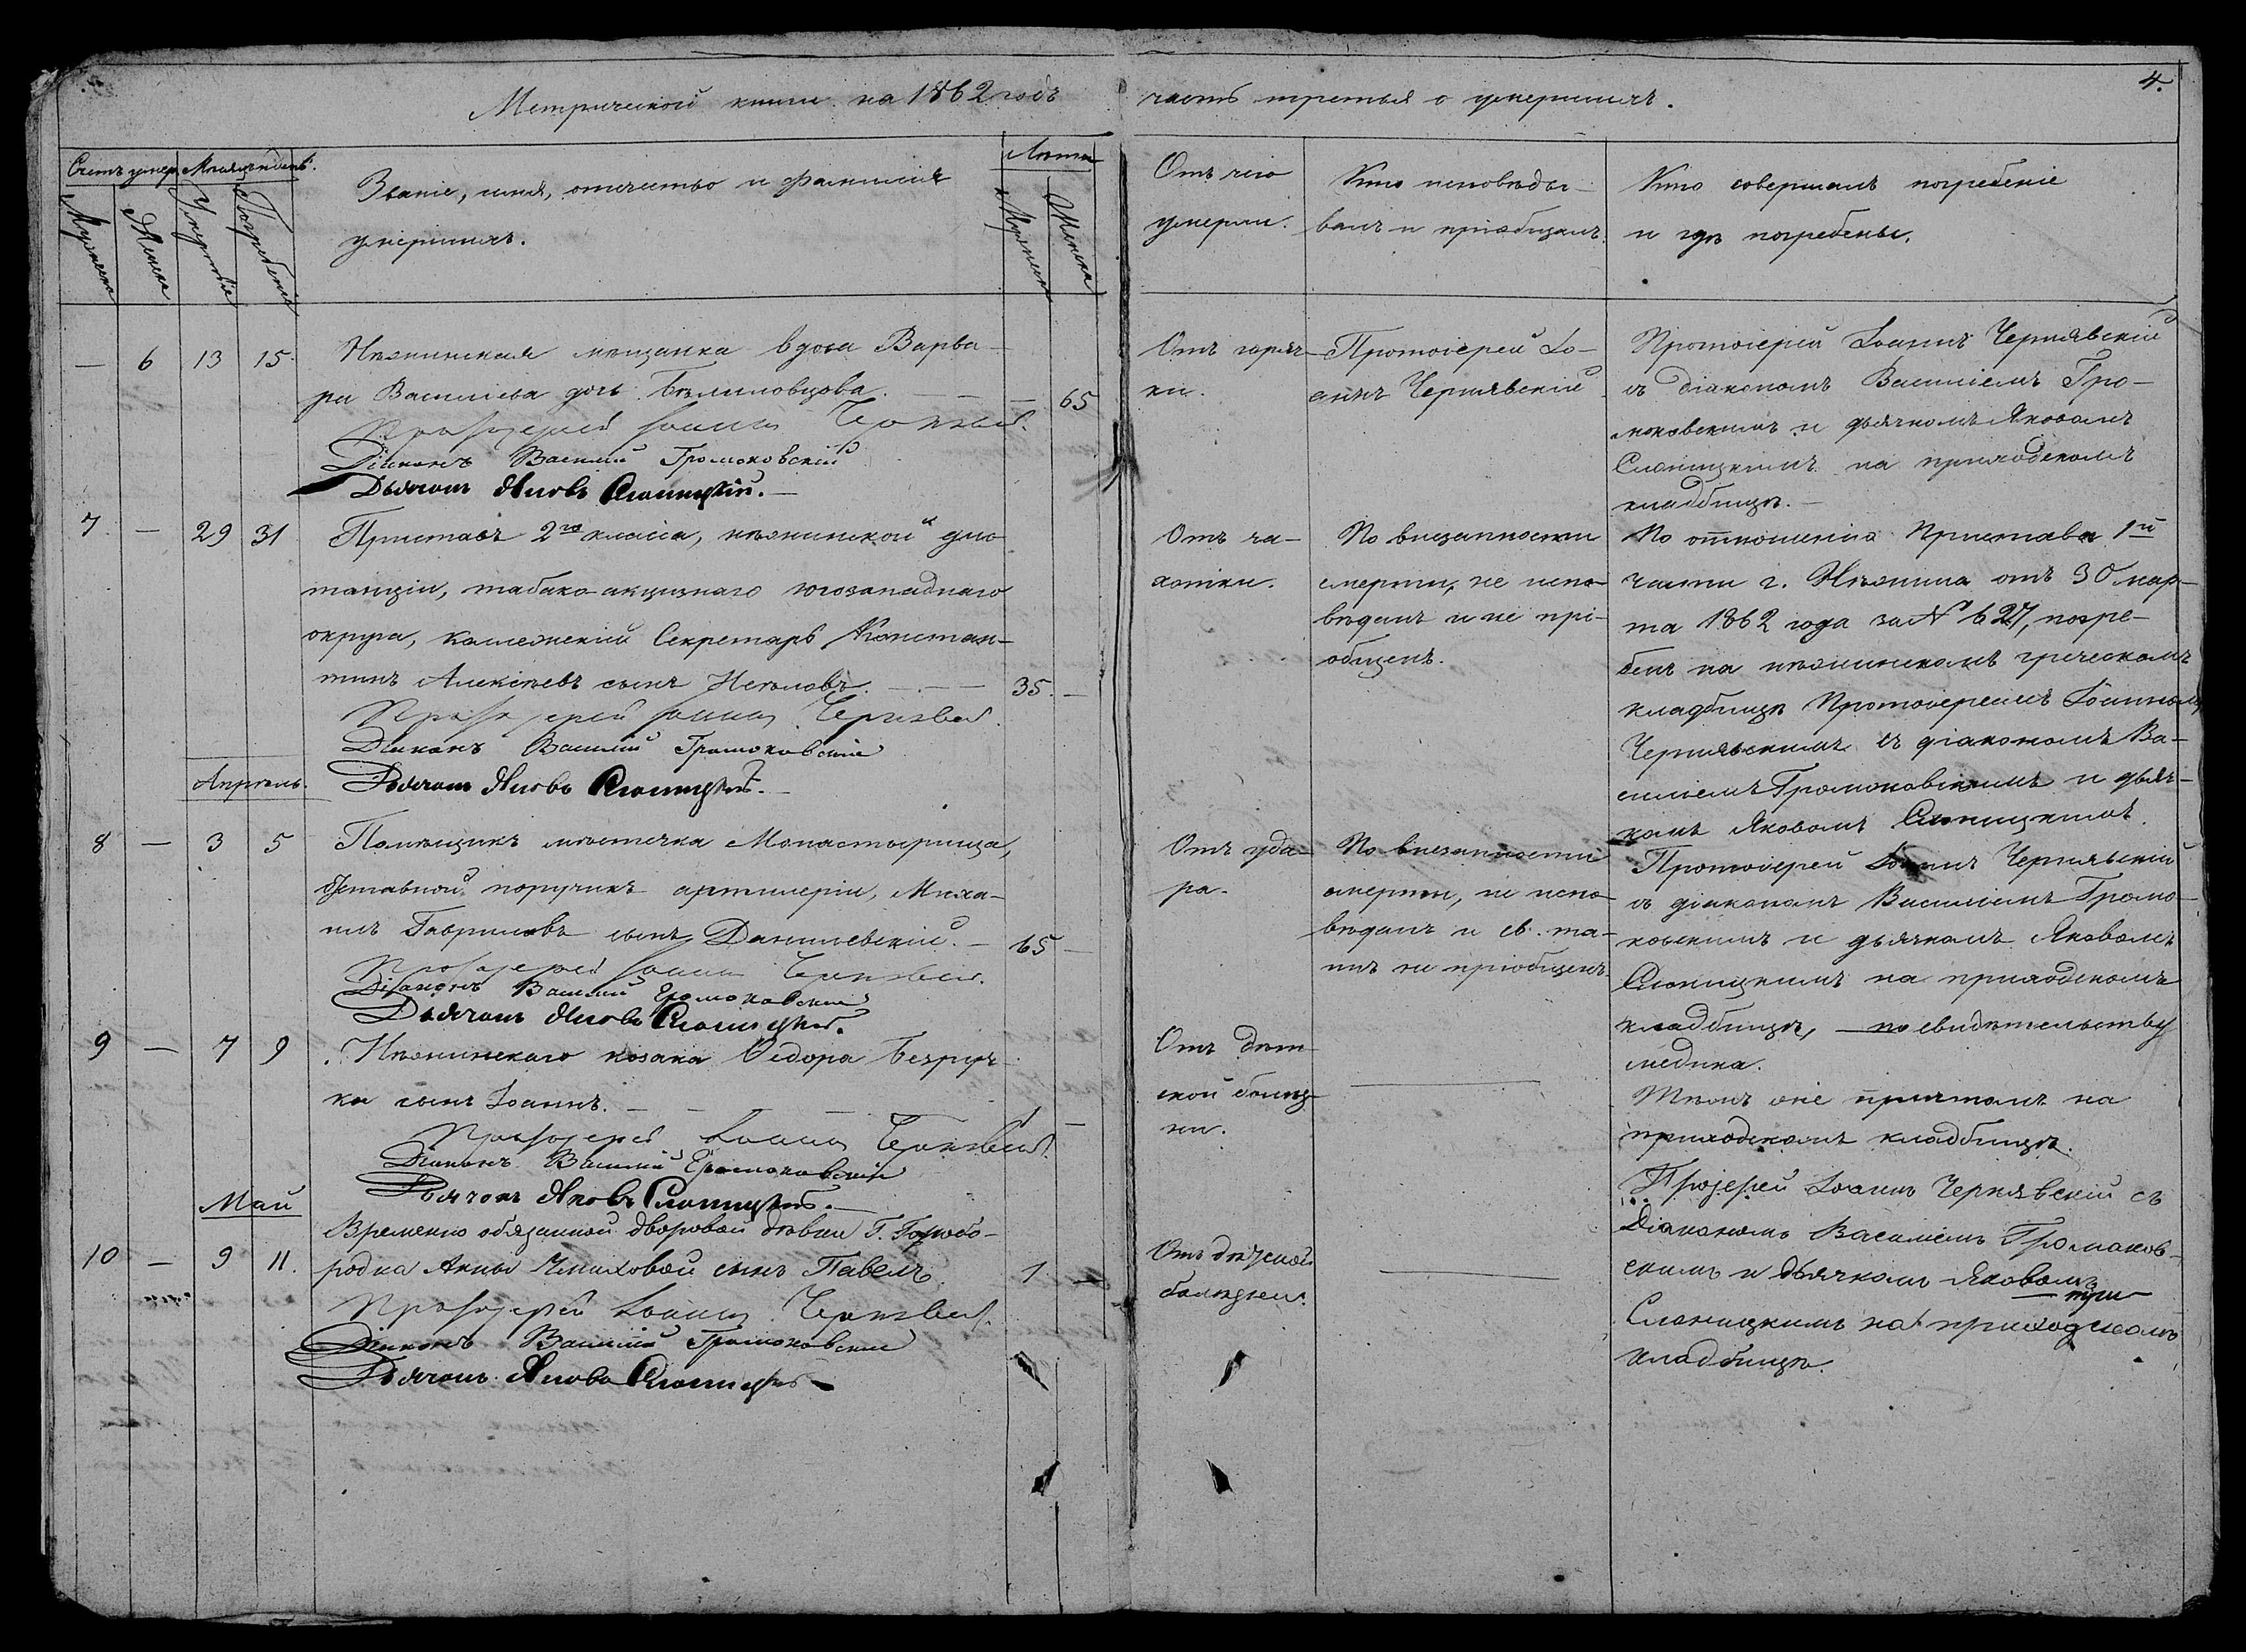 Метрической книги на 1862 годъ
часть третья о умершихъ.
4.
Счетъ умер.
Мѣсяцъ и день.
Мужеска
Женска
Умертвіе
Погребеніе
Званіе, имя, отчество и фамилія
умершихъ.
Лѣта
Мужеска
Женска
Отъ чего
умерли.
Кто исповѣды-
валъ и пріобщалъ.
Кто совершалъ погребеніе
и гдѣ погребены.
— 6 13 15.
Нѣжинская мѣщанка вдова Варва-
ра Василіева дочь
— 65
Протоіерей Іоаннъ Чернявскій.
Діаконъ Василій Громоковскій
Дьячокъ Яковъ Слоницкій.—
Отъ горяч-
ки.
Протоіерей Іо-
аннъ Чернявскій
Протоіерей Іоаннъ Чернявскій
съ діакономъ Василіемъ Гро-
моковскимъ и дьячкомъ Яковомъ
Слоницкимъ на приходскомъ
кладбищѣ.—
7. — 29 31
Приставъ 2го класса, нѣжинской дис-
танціи, табако-акцизнаго югозападнаго
округа, Коллежскій Секретарь Констан-
тинъ Алексѣевъ сынъ
35. —
Протоіерей Іоаннъ Чернявскій.
Діаконъ Василій Громоковскій
Дьячокъ Яковъ Слоницкій.—
Отъ ча-
хотки.
По внезапности
смерти, не испо-
вѣданъ и не прі-
общенъ.
По отношенію Пристава 1й
части г. Нѣжина отъ 30 мар-
та 1862 года за № 627, погре-
бенъ на нѣжинскомъ греческомъ
кладбищѣ Протоіереемъ Іоанномъ
Чернявскимъ съ діакономъ Ва-
силіемъ Громоковскимъ и дьяч-
комъ Яковомъ Слоницкимъ.
Апрѣль.
8 — 3 5
Помѣщикъ мѣстечка Монастырища,
отставной поручикъ артилеріи, Миха-
илъ Гавриловъ сынъ Данилевскій. —
65 —
Протоіерей Іоаннъ Чернявскій.
Діаконъ Василій Громоковскій
Дьячокъ Яковъ Слоницкій.
Отъ уда-
ра.
По внезапности
смерти, не испо-
вѣданъ и св. та-
инъ не пріобщенъ.
Протоіерей Іоаннъ Чернявскій
съ діакономъ Василіемъ Громо-
ковскимъ и дьячкомъ Яковомъ
Слоницкимъ на приходскомъ
кладбищѣ, — по свидѣтельству
медика.
9 — 7 9
Нѣжинскаго козака Ѳедора Безруч-
ка сынъ Іоаннъ. —
1 —
Протоіерей Іоаннъ Чернявскій.
Діаконъ Василій Громоковскій
Дьячокъ Яковъ Слоницкій.—
Отъ дѣт-
ской болѣз-
ни.
—
Тѣмъ же причтомъ на
приходскомъ кладбищѣ.
Май
10 — 9 11.
Временно обязанной дворовой дѣвки Г.
Анны сынъ Павелъ
1 —
Протоіерей Іоаннъ Чернявскій.
Діаконъ Василій Громоковскій
Дьячокъ Яковъ Слоницкій
Отъ дѣтской
болѣзни.
—
Протоіерей Іоаннъ Чернявскій съ
Діакономъ Василіемъ Громоков-
скимъ и дьячкомъ Яковомъ
Слоницкимъ на приходскомъ
кладбищѣ.